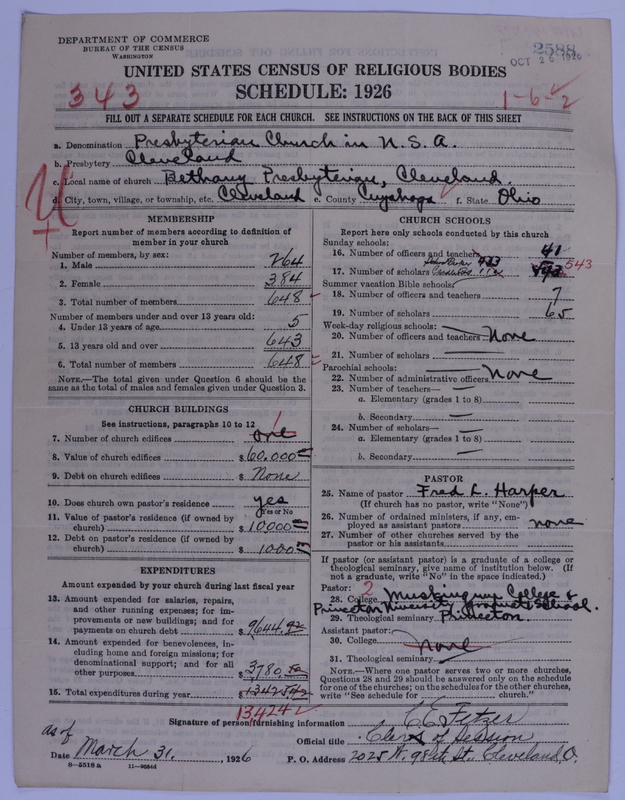 DEPARTMENT OF COMMERCE
BUREAU OF THE CENSUS
WASHINGTON
2588
OCT 26 1926
UNITED STATES CENSUS OF RELIGIOUS BODIES
SCHEDULE: 1926
343
1-6-2
FILL OUT A SEPARATE SCHEDULE FOR EACH CHURCH. SEE INSTRUCTIONS ON THE BACK OF THIS SHEET
a. Denomination Presbyterian Church in U.S.A.
b. Presbytery Cleveland
c. Local name of church Bethany Presbyterian, Cleveland.
d. City, town, village, or township, etc. Cleveland e. County Cuyahoga f. State Ohio
MEMBERSHIP
Report number of members according to definition of
member in your church
Number of members, by sex:
1. Male 264
2. Female 384
3. Total number of members 648
Number of members under and over 13 years old:
4. Under 13 years of age 5
5. 13 years old and over 643
6. Total number of members 648
NOTE.—The total given under Question 6 should be
same as the total of males and females given under Question 3.
CHURCH BUILDINGS
See instructions, paragraphs 10 to 12
7. Number of church edifices one 1
8. Value of church edifices $ 60,000
9. Debt on church edifices $ None
10. Does church own pastor's residence yes
Yes or No
11. Value of pastor's residence (if owned by
church) $ 10,000
12. Debt on pastor's residence (if owned by
church) $ 1000
EXPENDITURES
Amount expended by your church during last fiscal year
13. Amount expended for salaries, repairs,
and other running expenses; for im-
provements or new buildings; and for
payments on church debt $ 9644.92
14. Amount expended for benevolences, in-
cluding home and foreign missions; for
denominational support; and for all
other purposes $ 3780.
15. Total expenditures during year $ 13425
13424
CHURCH SCHOOLS
Report here only schools conducted by this church
Sunday schools:
16. Number of officers and teachers 41
17. Number of scholars 543
Summer vacation Bible schools:
18. Number of officers and teachers 7
19. Number of scholars 65
Week-day religious schools:
20. Number of officers and teachers None
21. Number of scholars
Parochial schools:
22. Number of administrative officers None
23. Number of teachers—
a. Elementary (grades 1 to 8)
b. Secondary
24. Number of scholars—
a. Elementary (grades 1 to 8)
b. Secondary
PASTOR
25. Name of pastor Fred L. Harper
(If church has no pastor, write "None")
26. Number of ordained ministers, if any, em-
ployed as assistant pastors none
27. Number of other churches served by the
pastor or his assistants
If pastor (or assistant pastor) is a graduate of a college or
theological seminary, give name of institution below. (If
not a graduate, write "No" in the space indicated.)
Pastor: 2
28. College Muskingum College &
Princeton University Graduate School.
29. Theological seminary Princeton
Assistant pastor:
30. College none
31. Theological seminary
NOTE.—Where one pastor serves two or more churches,
Questions 28 and 29 should be answered only on the schedule
for one of the churches; on the schedules for the other churches,
write "See schedule for church."
Signature of person furnishing information C.E. Fetzer
Official title Clerk of Session
as of
Date March 31, 1926 P. O. Address 2025 N. 98th St., Cleveland, O.
8—5518 a 11—9684d